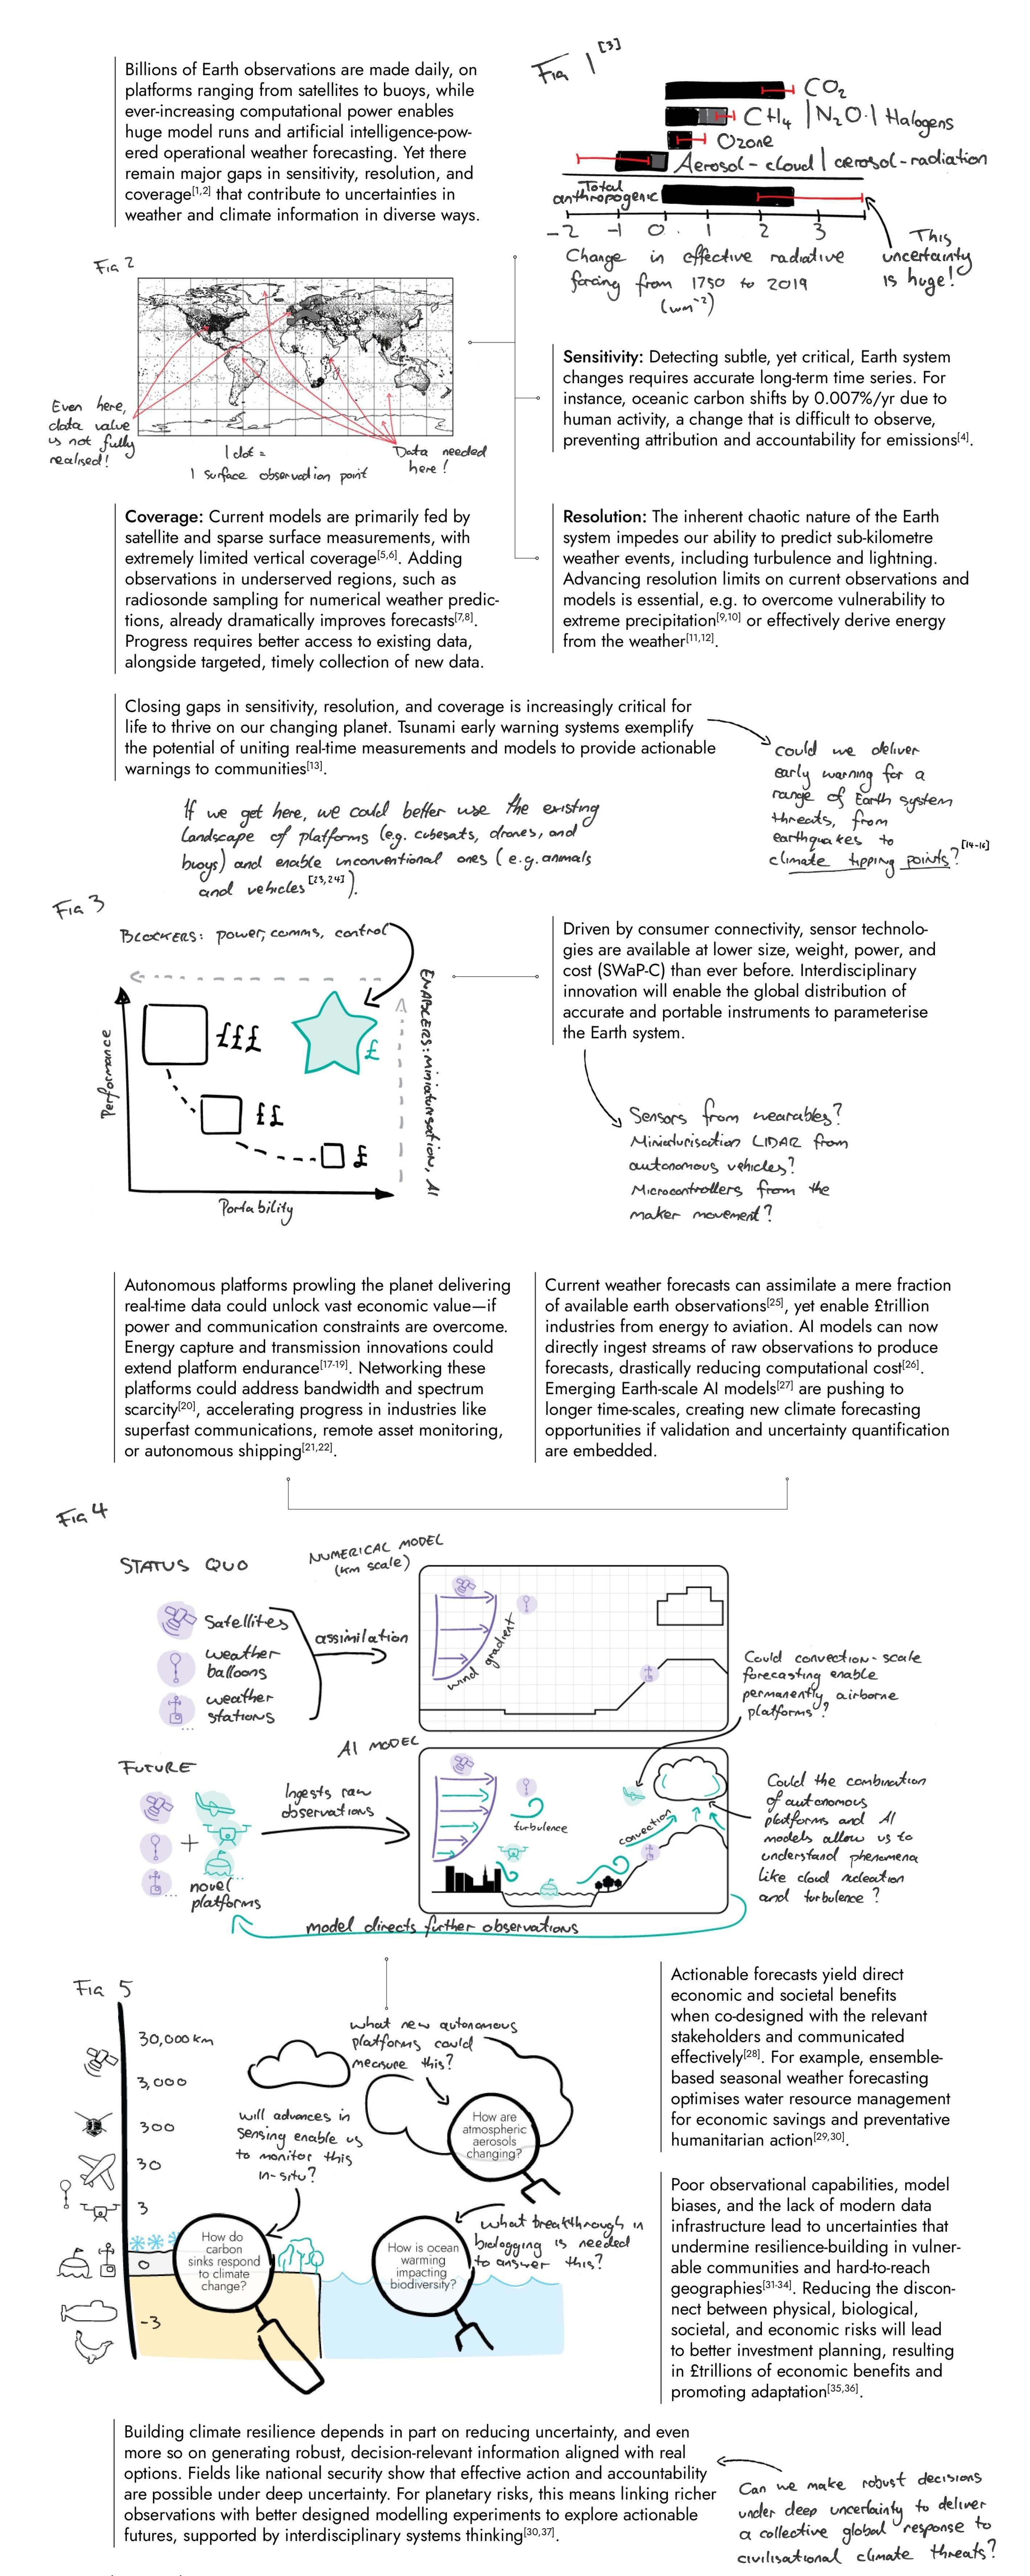 Billions of Earth observations are made daily, on
platforms ranging from satellites to buoys, while
ever-increasing computational power enables
huge model runs and artificial intelligence-pow-
ered operational weather forecasting. Yet there
remain major gaps in sensitivity, resolution, and
coverage[1,2] that contribute to uncertainties in
weather and climate information in diverse ways.
Fig 1 [3]
CO2
CH4 | N2O | Halogens
Ozone
Aerosol-cloud | aerosol-radiation
Total
anthropogenic
-2 -1 0 1 2 3
Change in effective radiative
forcing from 1750 to 2019
(wm⁻²)
This
uncertainty
is huge!
Fig 2
Even here,
data value
is not fully
realised!
1 dot =
1 surface observation point
Data needed
here!
Sensitivity: Detecting subtle, yet critical, Earth system
changes requires accurate long-term time series. For
instance, oceanic carbon shifts by 0.007%/yr due to
human activity, a change that is difficult to observe,
preventing attribution and accountability for emissions[4].
Coverage: Current models are primarily fed by
satellite and sparse surface measurements, with
extremely limited vertical coverage[5,6]. Adding
observations in underserved regions, such as
radiosonde sampling for numerical weather predic-
tions, already dramatically improves forecasts[7,8].
Progress requires better access to existing data,
alongside targeted, timely collection of new data.
Resolution: The inherent chaotic nature of the Earth
system impedes our ability to predict sub-kilometre
weather events, including turbulence and lightning.
Advancing resolution limits on current observations and
models is essential, e.g. to overcome vulnerability to
extreme precipitation[9,10] or effectively derive energy
from the weather[11,12].
Closing gaps in sensitivity, resolution, and coverage is increasingly critical for
life to thrive on our changing planet. Tsunami early warning systems exemplify
the potential of uniting real-time measurements and models to provide actionable
warnings to communities[13].
could we deliver
early warning for a
range of Earth system
threats, from
earthquakes to
climate tipping points? [14-16]
If we get here, we could better use the existing
landscape of platforms (e.g. cubesats, drones, and
buoys) and enable unconventional ones (e.g. animals
and vehicles [23,24]).
Fig 3
BLOCKERS: power, comms, control
ENABLERS: miniaturisation, AI
Performance
£££
££
£
£
Portability
Driven by consumer connectivity, sensor technolo-
gies are available at lower size, weight, power, and
cost (SWaP-C) than ever before. Interdisciplinary
innovation will enable the global distribution of
accurate and portable instruments to parameterise
the Earth system.
Sensors from wearables?
Miniaturisation LIDAR from
autonomous vehicles?
Microcontrollers from the
maker movement?
Autonomous platforms prowling the planet delivering
real-time data could unlock vast economic value—if
power and communication constraints are overcome.
Energy capture and transmission innovations could
extend platform endurance[17-19]. Networking these
platforms could address bandwidth and spectrum
scarcity[20], accelerating progress in industries like
superfast communications, remote asset monitoring,
or autonomous shipping[21,22].
Current weather forecasts can assimilate a mere fraction
of available earth observations[25], yet enable £trillion
industries from energy to aviation. AI models can now
directly ingest streams of raw observations to produce
forecasts, drastically reducing computational cost[26].
Emerging Earth-scale AI models[27] are pushing to
longer time-scales, creating new climate forecasting
opportunities if validation and uncertainty quantification
are embedded.
Fig 4
STATUS QUO
NUMERICAL MODEL
(km scale)
Satellites
weather
balloons
weather
stations
...
assimilation
wind gradient
Could convection-scale
forecasting enable
permanently airborne
platforms?
FUTURE
AI MODEL
+
novel
platforms
...
Ingests raw
observations
turbulence
convection
Could the combination
of autonomous
platforms and AI
models allow us to
understand phenomena
like cloud nucleation
and turbulence?
model directs further observations
Fig 5
30,000 km
3,000
300
30
3
0
-3
what new autonomous
platforms could
measure this?
How are
atmospheric
aerosols
changing?
will advances in
sensing enable us
to monitor this
in-situ?
How do
carbon
sinks respond
to climate
change?
what breakthrough in
biologging is needed
to answer this?
How is ocean
warming
impacting
biodiversity?
Actionable forecasts yield direct
economic and societal benefits
when co-designed with the relevant
stakeholders and communicated
effectively[28]. For example, ensemble-
based seasonal weather forecasting
optimises water resource management
for economic savings and preventative
humanitarian action[29,30].
Poor observational capabilities, model
biases, and the lack of modern data
infrastructure lead to uncertainties that
undermine resilience-building in vulner-
able communities and hard-to-reach
geographies[31-34]. Reducing the discon-
nect between physical, biological,
societal, and economic risks will lead
to better investment planning, resulting
in £trillions of economic benefits and
promoting adaptation[35,36].
Building climate resilience depends in part on reducing uncertainty, and even
more so on generating robust, decision-relevant information aligned with real
options. Fields like national security show that effective action and accountability
are possible under deep uncertainty. For planetary risks, this means linking richer
observations with better designed modelling experiments to explore actionable
futures, supported by interdisciplinary systems thinking[30,37].
Can we make robust decisions
under deep uncertainty to deliver
a collective global response to
civilisational climate threats?